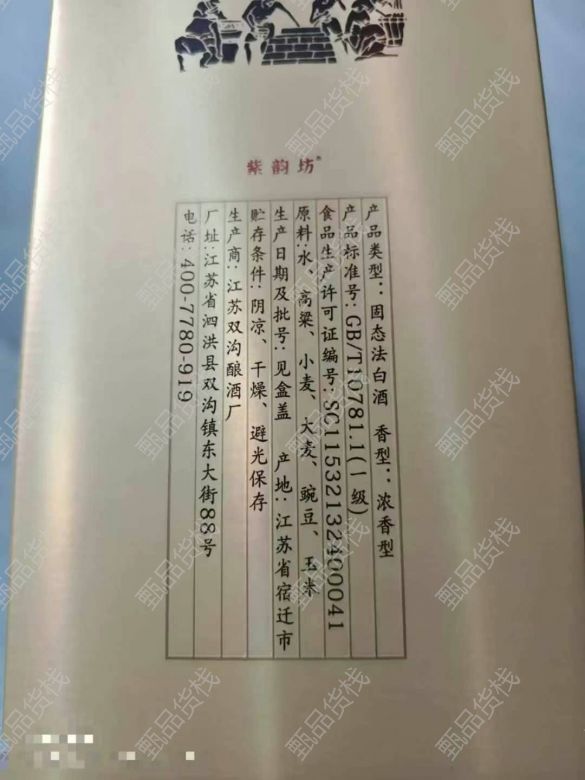 紫韵坊®
产品类型：固态法白酒 香型：浓香型
产品标准号：GB/T10781.1(一级)
食品生产许可证编号：SC11532132400041
原料：水、高粱、小麦、大麦、豌豆、玉米
生产日期及批号：见盒盖 产地：江苏省宿迁市
贮存条件：阴凉、干燥、避光保存
生产商：江苏双沟酿酒厂
厂址：江苏省泗洪县双沟镇东大街88号
电话：400-7780-919
甄品货栈